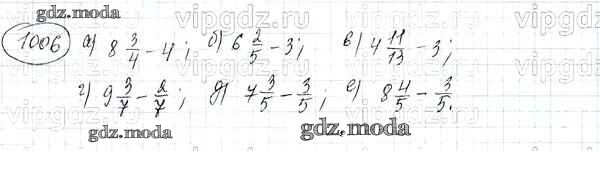 gdz.moda
vipgdz.moda vipgdz.moda
1006 а) 8 3/4 - 4; б) 6 2/5 - 3; в) 4 11/13 - 3;
г) 9 3/7 - 2/7; д) 7 3/5 - 3/5; е) 8 4/5 - 3/5.
gdz.moda gdz.moda